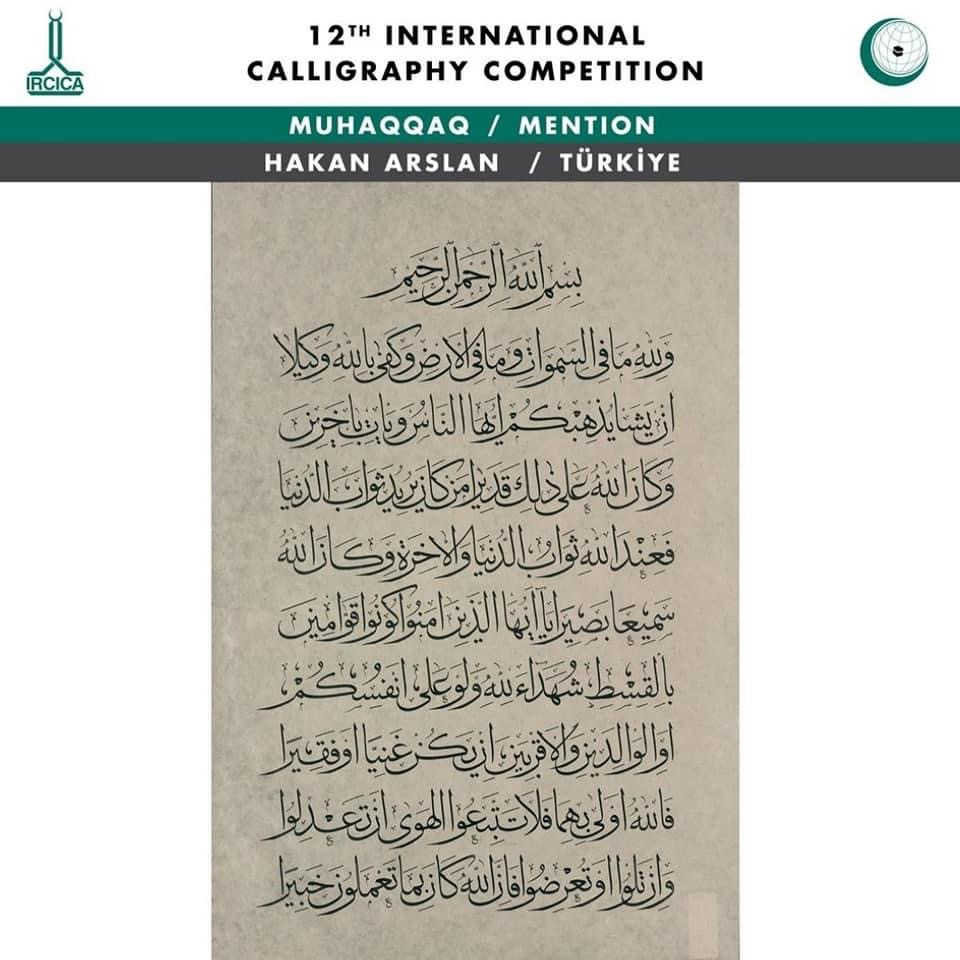 IRCICA
12TH INTERNATIONAL
CALLIGRAPHY COMPETITION
MUHAQQAQ / MENTION
HAKAN ARSLAN / TÜRKİYE
بسم الله الرحمن الرحيم
ولله ما في السموات وما في الارض وكفى بالله وكيلا
ان يشا يذهبكم ايها الناس ويات باخرين
وكان الله على ذلك قديرا من كان يريد ثواب الدنيا
فعند الله ثواب الدنيا والاخرة وكان الله
سميعا بصيرا يا ايها الذين امنوا كونوا قوامين
بالقسط شهداء لله ولو على انفسكم
او الوالدين والاقربين ان يكن غنيا او فقيرا
فالله اولى بهما فلا تتبعوا الهوى ان تعدلوا
وان تلوا او تعرضوا فان الله كان بما تعملون خبيرا